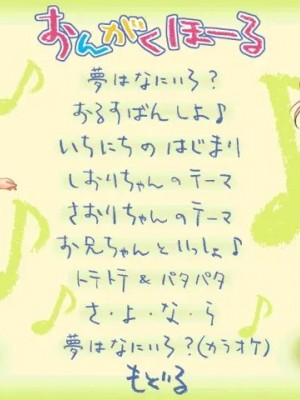 おんがくほーる
夢はなにいろ？
おるすばんしよ♪
いちにちのはじまり
しおりちゃんのテーマ
さおりちゃんのテーマ
お兄ちゃんといっしょ♪
トテトテ & パタパタ
さ・よ・な・ら
夢はなにいろ？(カラオケ)
もどる